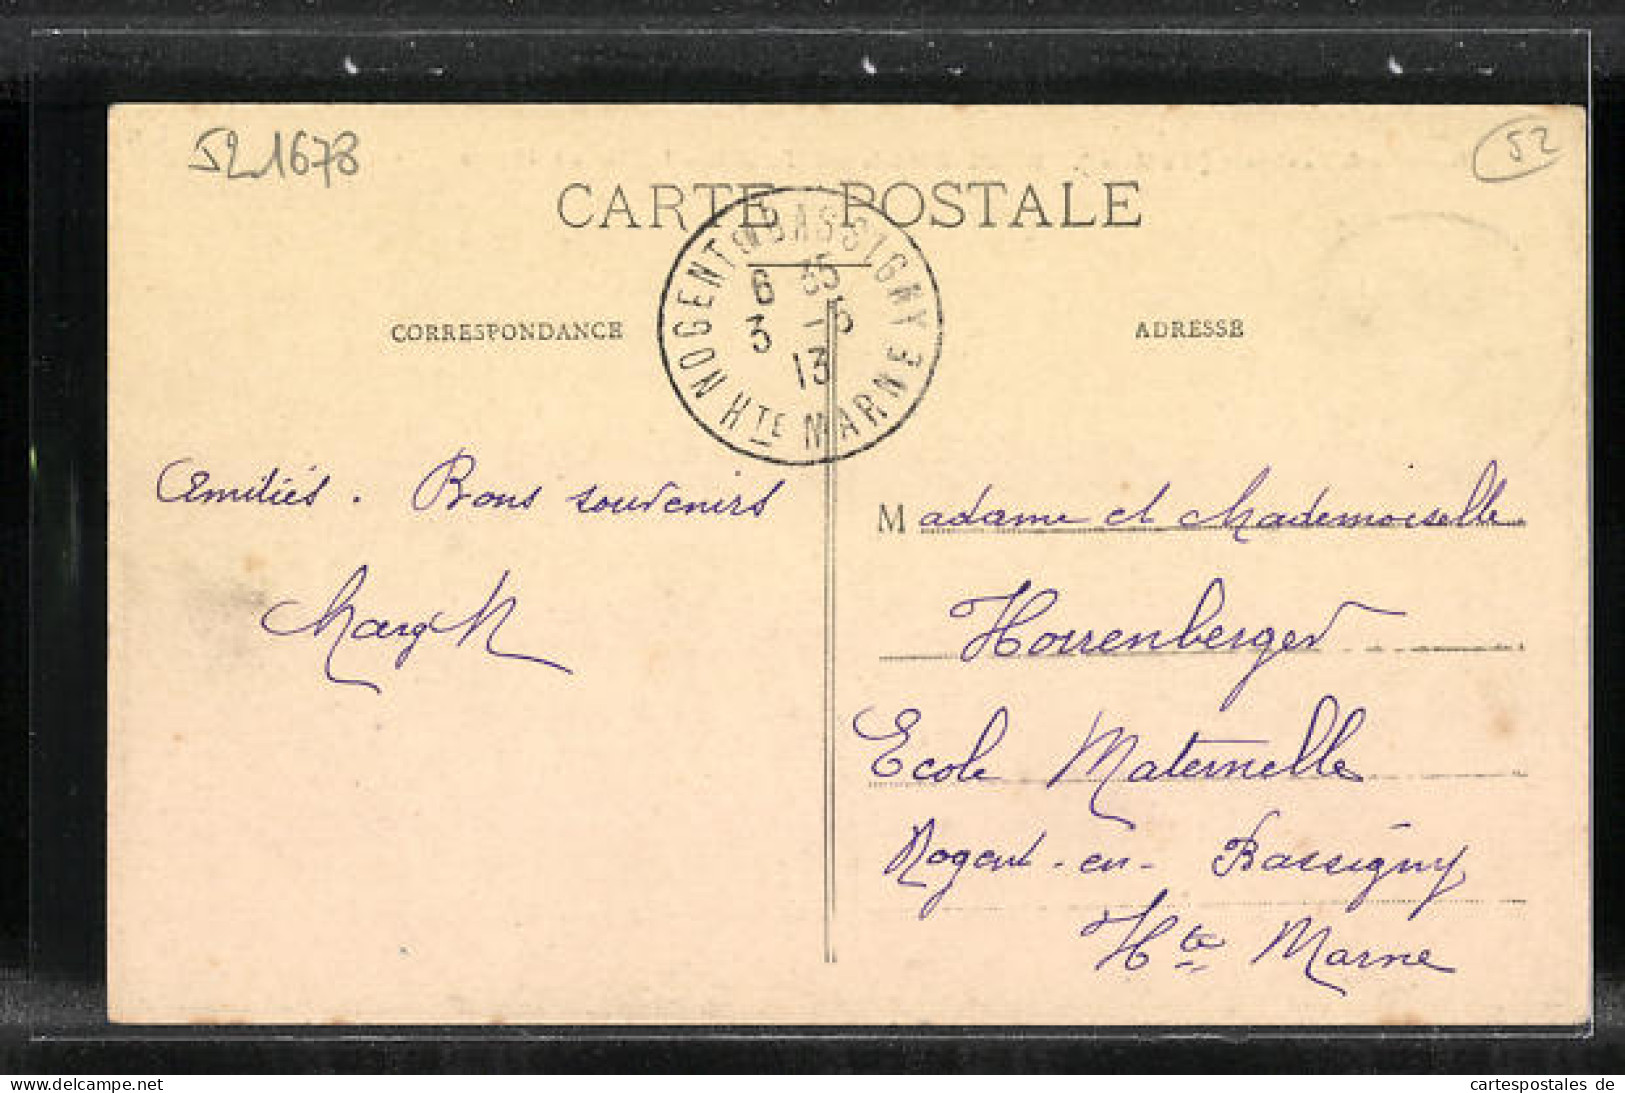 521678
52
CARTE POSTALE
NOGENT EN BASSIGNY
6 35
3 -5
13
HTE MARNE
CORRESPONDANCE
ADRESSE
Amitiés. Bons souvenirs
Marg M
Madame et Mademoiselle
Horrenberger
Ecole Maternelle
Nogent-en-Bassigny
Hte Marne
www.cartespostales-online.net
cartespostales de